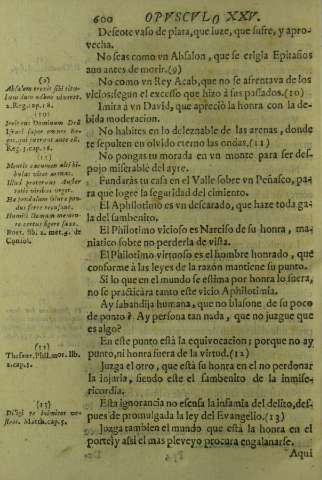 600 OPVSCVLO XXV.
Deseote vaso de plata, que luze, que sufre, y apro-
vecha.
No seas como vn Absalon, que se erigia Epitafios
aun antes de morir. (9)
No como vn Rey Acab, que no se afrentava de los
vicios: segun el excesso que hizo à sus passados. (10)
Imita à vn David, que apreciò la honra con la de-
bida moderacion.
No habites en lo deleznable de las arenas, donde
te sepulten en olvido eterno las ondas. (11)
No pongas tu morada en vn monte para ser des-
pojo miserable del ayre.
Fundaràs tu casa en el Valle sobre vn Peñasco, pa-
ra que logre la seguridad del cimiento.
El Aphilotimo es vn descarado, que haze toda ga-
la del sambenito.
El Philotimo vicioso es Narciso de su honra, ma-
niatico sobre no perderla de vista.
El Philotimo virtuoso es el hombre honrado, que
conforme à las leyes de la razòn mantiene su punto.
Si lo que en el mundo se estima por honra lo fuera,
no se practicàra tanto este vicio Aphilotimia.
Ay sabandija humana, que no blasone de su poco
de punto? Ay persona tan nada, que no juzgue que
es algo?
En este punto està la equivocacion; porque no ay
punto, ni honra fuera de la virtud. (12)
Juzga el otro, que està su honra en el no perdonar
la injuria, siendo este el sambenito de la inmise-
ricordia.
Esta ignorancia no escusa la infamia del delito, des-
pues de promulgada la ley del Evangelio. (13)
Juzga tambien el mundo que està la honra en el
porte; y assi el mas pleveyo procura engalanarse.
Aqui
(9)
Absalon erexit sibi titu-
lum cum adhuc viveret.
2. Reg. cap. 18.
(10)
Irritavit Dominum Deū
Israel super omnes Re-
ges, qui fuerunt ante eū.
Reg. 3. cap. 16.
(11)
Montis cacumen alti
bibulas vitet arenas.
Illud protervus Auster
totis viribus urget.
Hæ pendulum solutæ pon-
dus ferre recusant.
Humili domum memen-
to certus figere saxo.
Boet. lib. 2. met. 4. de
Consol.
(12)
Thesaur. Phil. mor. lib.
2. cap. 1.
(13)
Diligite inimicos ve-
stros. Matth. cap. 5.